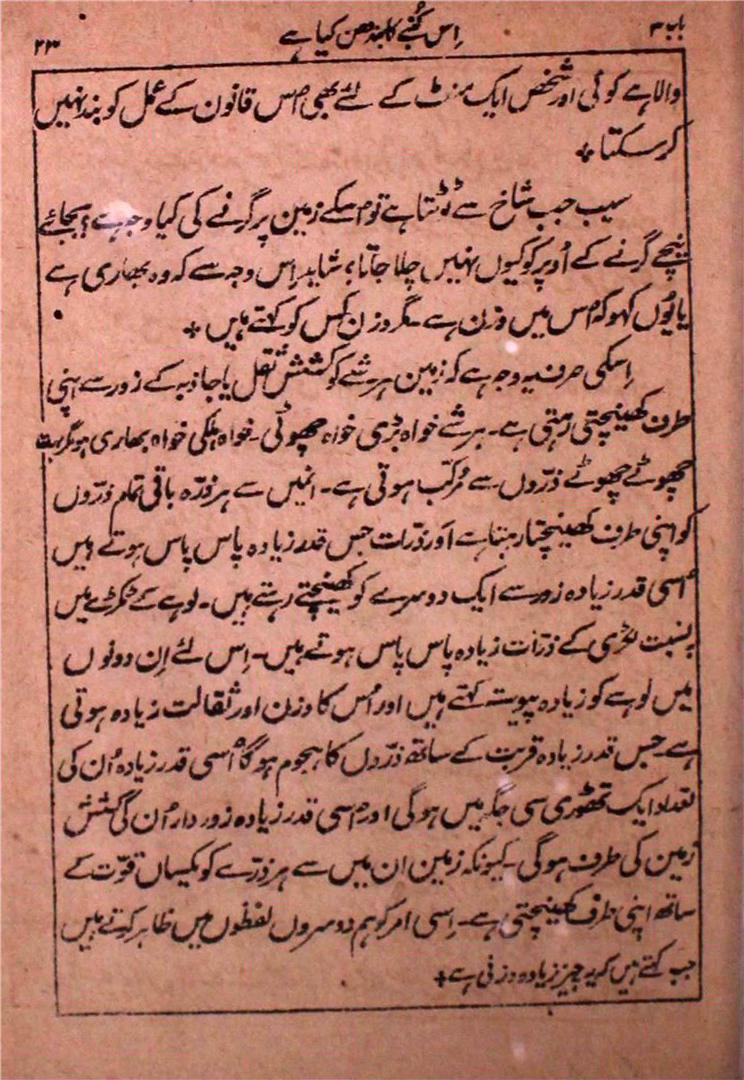 باب ۳ اِس کُنبے کا بندھن کیا ہے ۲۳
والا ہے کوئی اور شخص ایک منٹ کے لئے بھی اُس قانون کے عمل کو بند نہیں
کر سکتا +
سیب جب شاخ سے ٹوٹتا ہے تو اُسکے زمین پر گرنے کی کیا وجہ ہے؟ بجائے
نیچے گرنے کے اُوپر کو کیوں نہیں چلا جاتا؟ شاید اِس وجہ سے کہ وہ بھاری ہے
یا یُوں کہو کہ اُس میں وزن ہے۔ مگر وزن کِس کو کہتے ہیں +
اِسکی صرف یہ وجہ ہے کہ زمین ہر شے کو کششِ ثقل یا جاذبہ کے زور سے اپنی
طرف کھینچتی رہتی ہے۔ ہر شے خواہ بڑی خواہ چھوٹی۔ خواہ ہلکی خواہ بھاری ہو مگر بہت
چھوٹے چھوٹے ذرّوں سے مُرکّب ہوتی ہے۔ انمیں سے ہر ذرّہ باقی تمام ذرّوں
کو اپنی طرف کھینچتا رہتا ہے اَور ذرّات جس قدر زیادہ پاس پاس ہوتے ہیں
اُسی قدر زیادہ زور سے ایک دوسرے کو کھینچتے رہتے ہیں۔ لوہے کے ٹکڑے میں
بنسبت لکڑی کے ذرّات زیادہ پاس پاس ہوتے ہیں۔ اِس لئے اِن دونوں
میں لوہے کو زیادہ پیوستہ کہتے ہیں اور اُس کا وزن اور ثقالت زیادہ ہوتی
ہے۔ جس قدر زیادہ قربت کے ساتھ ذرّوں کا ہجوم ہوگا اُسی قدر زیادہ اُن کی
تعداد ایک تھوڑی سی جگہ میں ہوگی اور اُسی قدر زیادہ زوردار اُن کی کشش
زمین کی طرف ہوگی۔ کیونکہ زمین ان میں سے ہر ذرّے کو یکساں قوّت کے
ساتھ اپنی طرف کھینچتی ہے۔ اِسی امر کو ہم دوسروں لفظوں میں ظاہر کرتے ہیں
جب کہتے ہیں کہ یہ چیز زیادہ وزنی ہے +